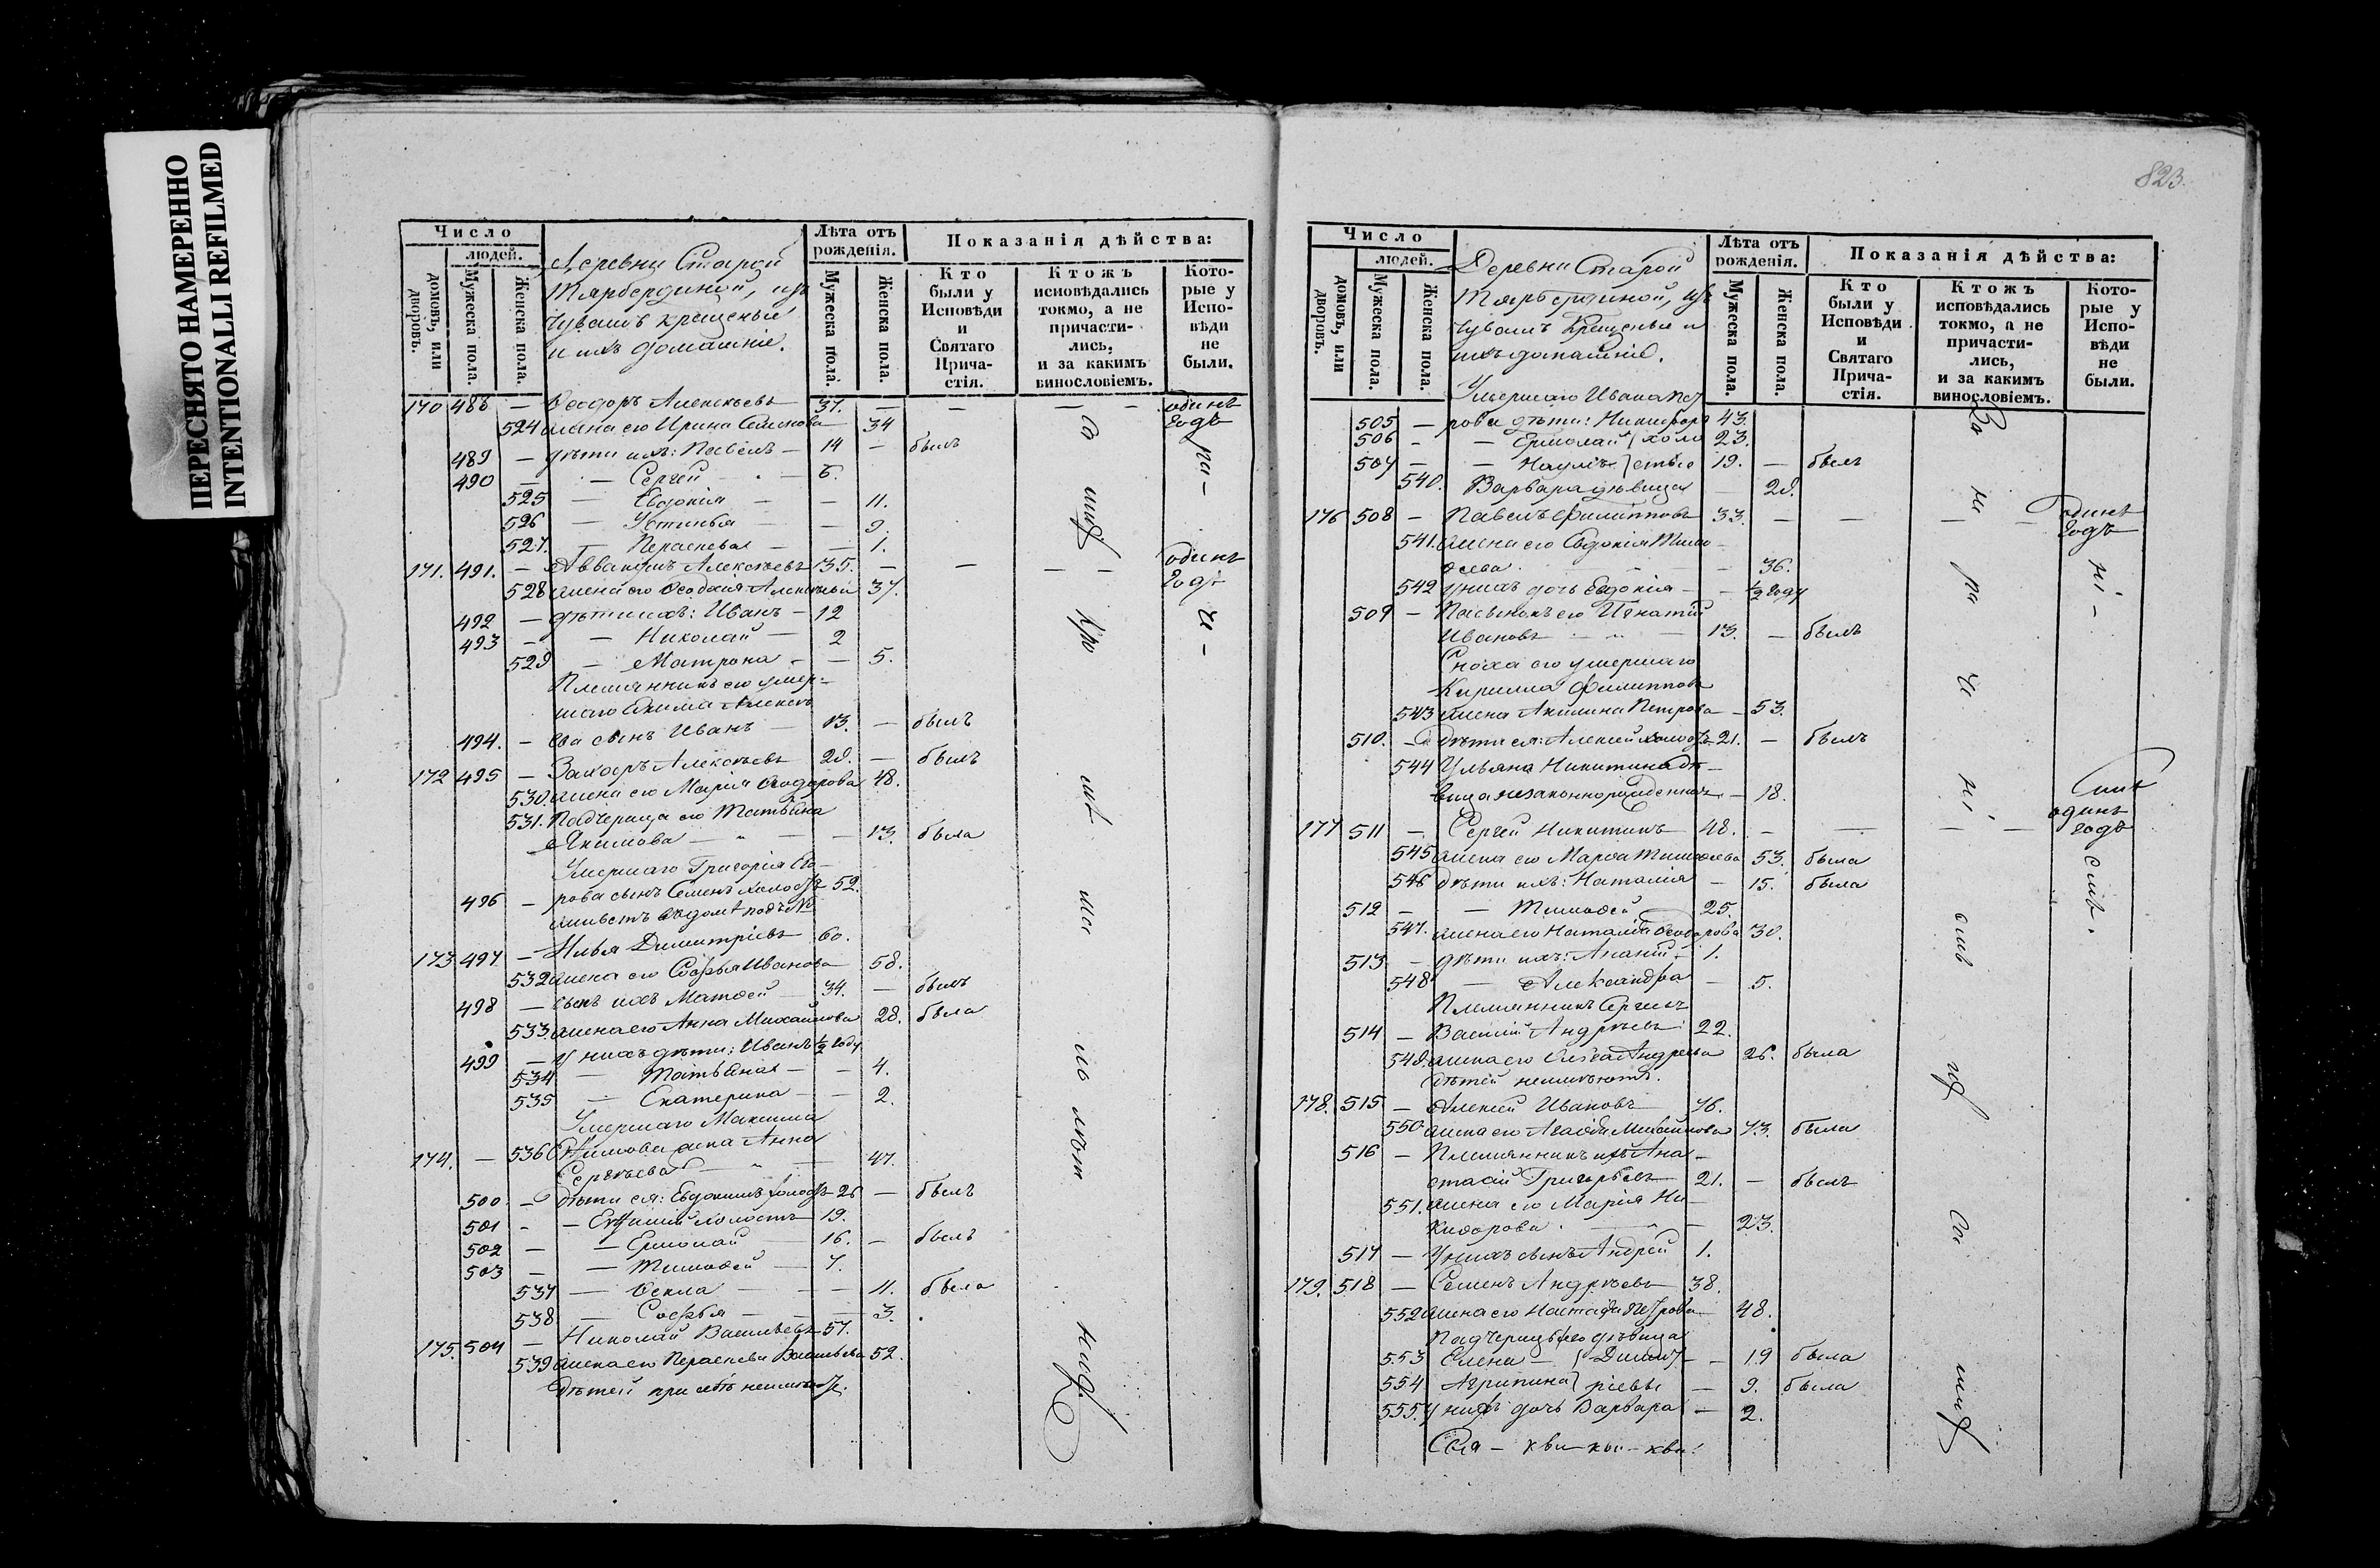 ПЕРЕСНЯТО НАМЕРЕННО
INTENTIONALLI REFILMED
Число
людей.
домовъ, или дворовъ.
Мужеска пола.
Женска пола.
Деревни Старой
Тярбердиной, изъ
Чувашъ крещеные
и ихъ домашніе.
Лѣта отъ рожденія.
Мужеска пола.
Женска пола.
Показанія дѣйства:
Кто были у Исповѣди и Святаго Прича-стія.
Ктожъ исповѣдались токмо, а не причасти-лись, и за какимъ винословіемъ.
Кото-рые у Испо-вѣди не были.
170 488 — Ѳеодоръ Алексѣевъ 37. — — — одинъ
524 жена его Ирина Семенова — 34 годъ
489 — дѣти ихъ: Павелъ — 14 — былъ
490 — — Сергей — 6.
525 — Евдокія — — 11.
526 — Устинья — — 9.
527. — Параскева — — 1.
171. 491. — Аввакумъ Алексѣевъ 35. — — — одинъ
528 жена его Ѳеодосія Алексѣева 37. годъ
492 — дѣти ихъ: Иванъ — 12
493 — — Николай — 2
529 — Матрона — — 5.
Племянникъ его умер-
шаго Алексѣ
494. — ева сынъ Иванъ — 13. — былъ
172 495 — Захаръ Алексѣевъ 29. — былъ
530. жена его Марія Ѳеодорова 48.
531. Падчерица его Татьяна
Якимова — — — 13. была
Умершаго Григорія Его-
496 — рова сынъ Семенъ холостъ 52.
173 497 — Илья Димитріевъ 60.
532 жена его Софья Иванова 58.
498 — сынъ ихъ Матѳей — 34. — былъ
533. жена его Анна Михайлова 28. была
499 — У нихъ дѣти: Иванъ ½ году
534 — Татьяна — — 4.
535 — Екатерина — — 2.
Умершаго Максима
174. — 536 жена Анна
Сергѣева — — 47.
500 — Дѣти ея: Евдокимъ холостъ 26 — былъ
501 — — Евѳимій холостъ 19.
502 — — Ермолай 16. — былъ
503 — — Тимоѳей — 7.
537 — Ѳекла — — 11. была
538 — Софья — — 3.
175. 504 — Николай Васильевъ 57.
539 жена его Параскева Васильева 52.
Дѣтей при себѣ неимѣютъ.
823.
Число
людей.
домовъ, или дворовъ.
Мужеска пола.
Женска пола.
Деревни Старой
Тярбердиной, изъ
Чувашъ Крещеные и
ихъ домашніе.
Лѣта отъ рожденія.
Мужеска пола.
Женска пола.
Показанія дѣйства:
Кто были у Исповѣди и Святаго Прича-стія.
Ктожъ исповѣдались токмо, а не причасти-лись, и за какимъ винословіемъ.
Кото-рые у Испо-вѣди не были.
Умершаго Ивана Пет
505 — рова дѣти: Никифоръ 43.
506 — — Ермолай } холо 23.
507 — — Наумъ } стые 19. — былъ
540. Варвара дѣвица — 29.
176 508 — Павелъ Филипповъ 33. — — — одинъ
541. жена его Евдокія Тимо- годъ
ѳеева — 36.
542 у нихъ дочь Евдокія — — ½ году
509 — Пасынокъ его Игнатій
Ивановъ — 13. — былъ
Сноха его умершаго
Кирилла Филиппова
543 жена Акилина Петрова — 53.
510. — Дѣти ея: Алексей холостъ 21. — былъ
544 Ульяна Никитина дѣ-
вица незаконнорожденная — 18.
177 511 — Сергей Никитинъ 48. — — — одинъ годъ
545 жена его Марѳа Тимоѳеева 53. была
546 дѣти ихъ: Наталія — 15. была
512 — — Тимоѳей 25.
547. жена его Наталія Ѳеодорова 30.
513 — дѣти ихъ: Ананій — 1.
548 — Александра — 5.
Племянникъ Сергеевъ
514 — Василій Андреевъ 22.
549. жена его Андреева 26. была
Дѣтей неимѣютъ.
178. 515 — Алексей Ивановъ 76.
550 жена его Агаѳія Михайлова 73. была
516 — Племянникъ ихъ Ана-
стасій Григорьевъ 21. — былъ
551. жена его Марія Ни-
кифорова — 23.
517 — У нихъ сынъ Андрей 1.
179. 518 — Семенъ Андреевъ 38.
552 жена его Настасья Петрова 48.
Падчерицы его дѣвица
553 Елена — } Димит — 19 была
554 Агрипина } ріевы — 9. была
555. У нихъ дочь Варвара — 2.